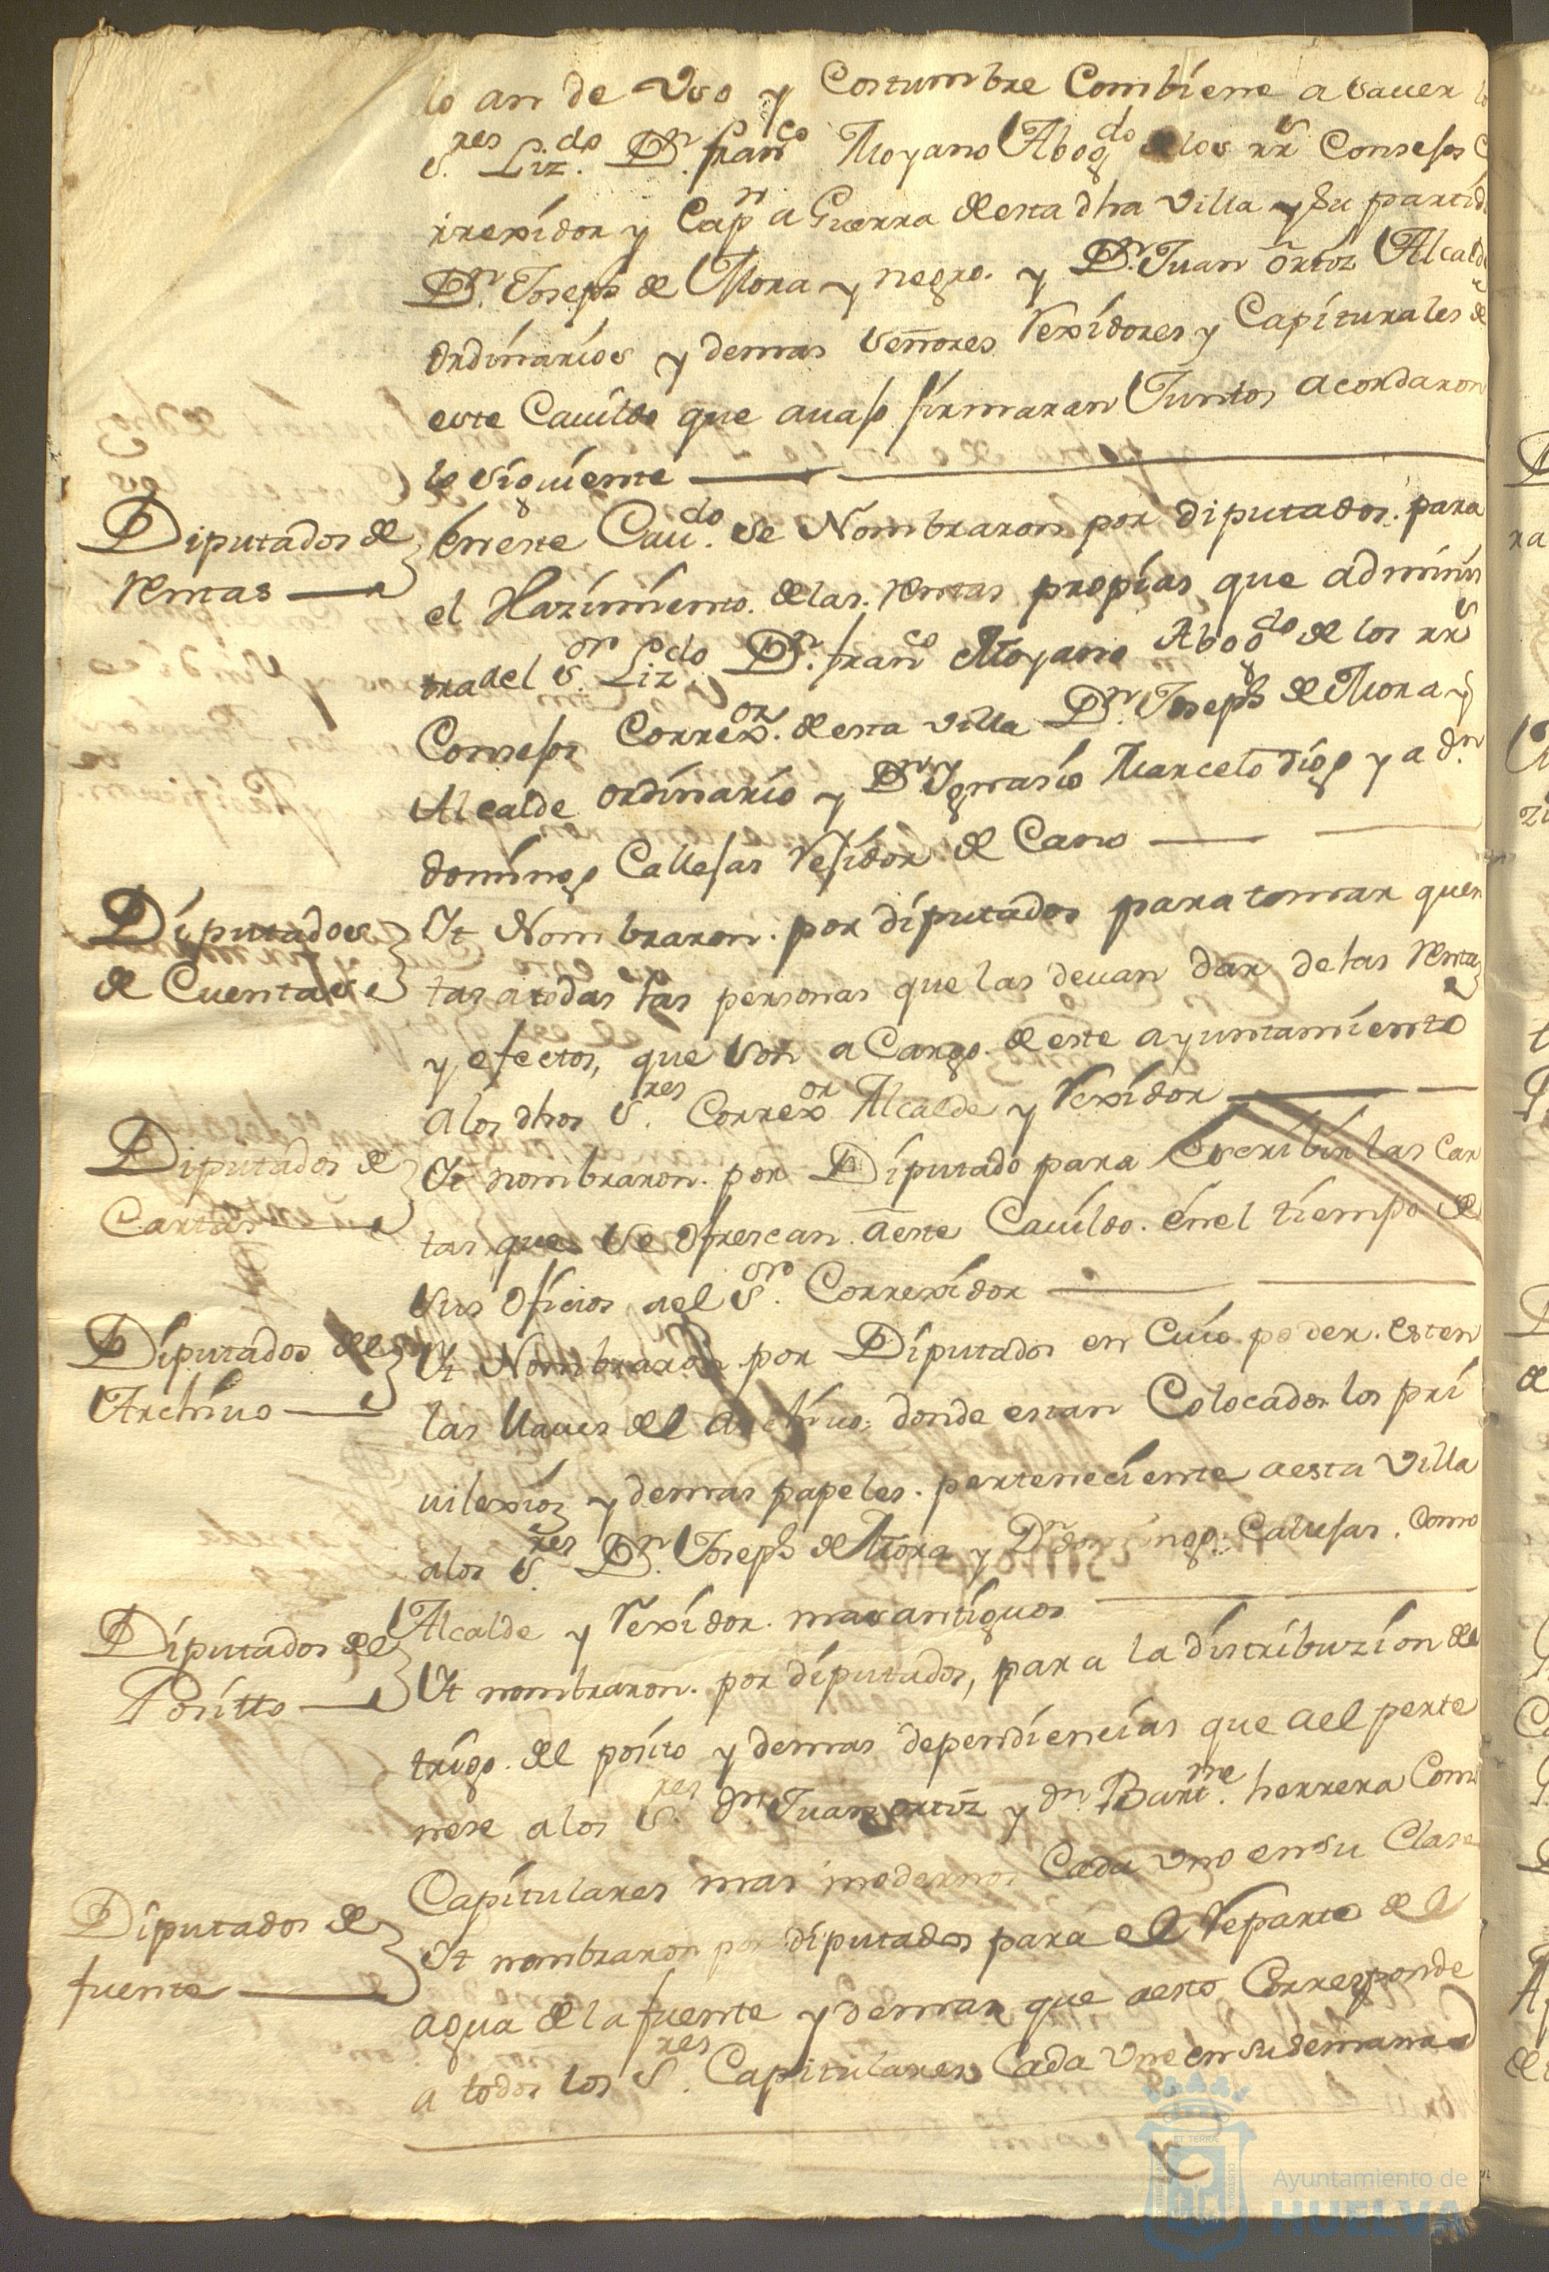 lo an de Vso y Costumbre Combiene a sauer
s.res Liz.do D.n fran.co Moyano Abog.do de los rr.s Consejos
rrexidor y Cap.n a Guerra de esta dha Villa y su partid
D.n Joseph de Mora y negro. y D.n Juan ortiz Alcald
ordinarios y demas señores Rexidores y Capiturales de
este Cauildo que auajo firmaran Juntos acordaron
lo siguiente
Diputados de
Rentas
En este Cau.do se Nombraron por diputados. para
el Hazimiento. de las. Rentas propias que adminis
tra del s.or Liz.do D.n fran.co Moyano Abog.do de los rr.s
Consejos Correx.or de esta Villa D.n Joseph de Mora y
Alcalde ordinario y D.n Ygnasio Marcelo Diog y a d.n
domingo Callejas Rejidor de Cano
Diputados
de Cuentas
Yt Nombraron. por diputados para tomar quen
tas a todas las personas que las deuan dar de las Rentas
y efectos, que son a Cargo. de este ayuntamiento
a los dhos s.res Correx.or Alcalde y Rexidor
Diputados de
Cartas
Yt nombraron. por Diputado para Escribir las Car
tas que se ofrescan a este Cauildo. en el tiempo de
sus oficios a el s.or Correxidor
Diputados del
Archiuo
Yt Nombraron por Diputados en Cuio poder. esten
las llaues del Archiuo. donde estan Colocados los pri
uilexios y demas papeles. perteneciente a esta Villa
a los s.res D.n Joseph de Mora y D.n domingo. Callejas. Como
Alcalde y Rexidor. mas antiguos
Diputados del
Positto
Yt nombraron. por diputados, para la distribuzion del
trigo. del posito y demas dependiencias que a el perte
nese a los s.res d.n Juan ortiz y d.n Bart.me herrera Com
Capitulares mas modernos Cada Vno en su Clase
Diputados de
fuente
Yt nombraron por diputados para el Reparto del
agua de la fuente y demas que a esto Corresponde
a todos los s.res Capitulares Cada Vno en su semana
Ayuntamiento de
HUELVA